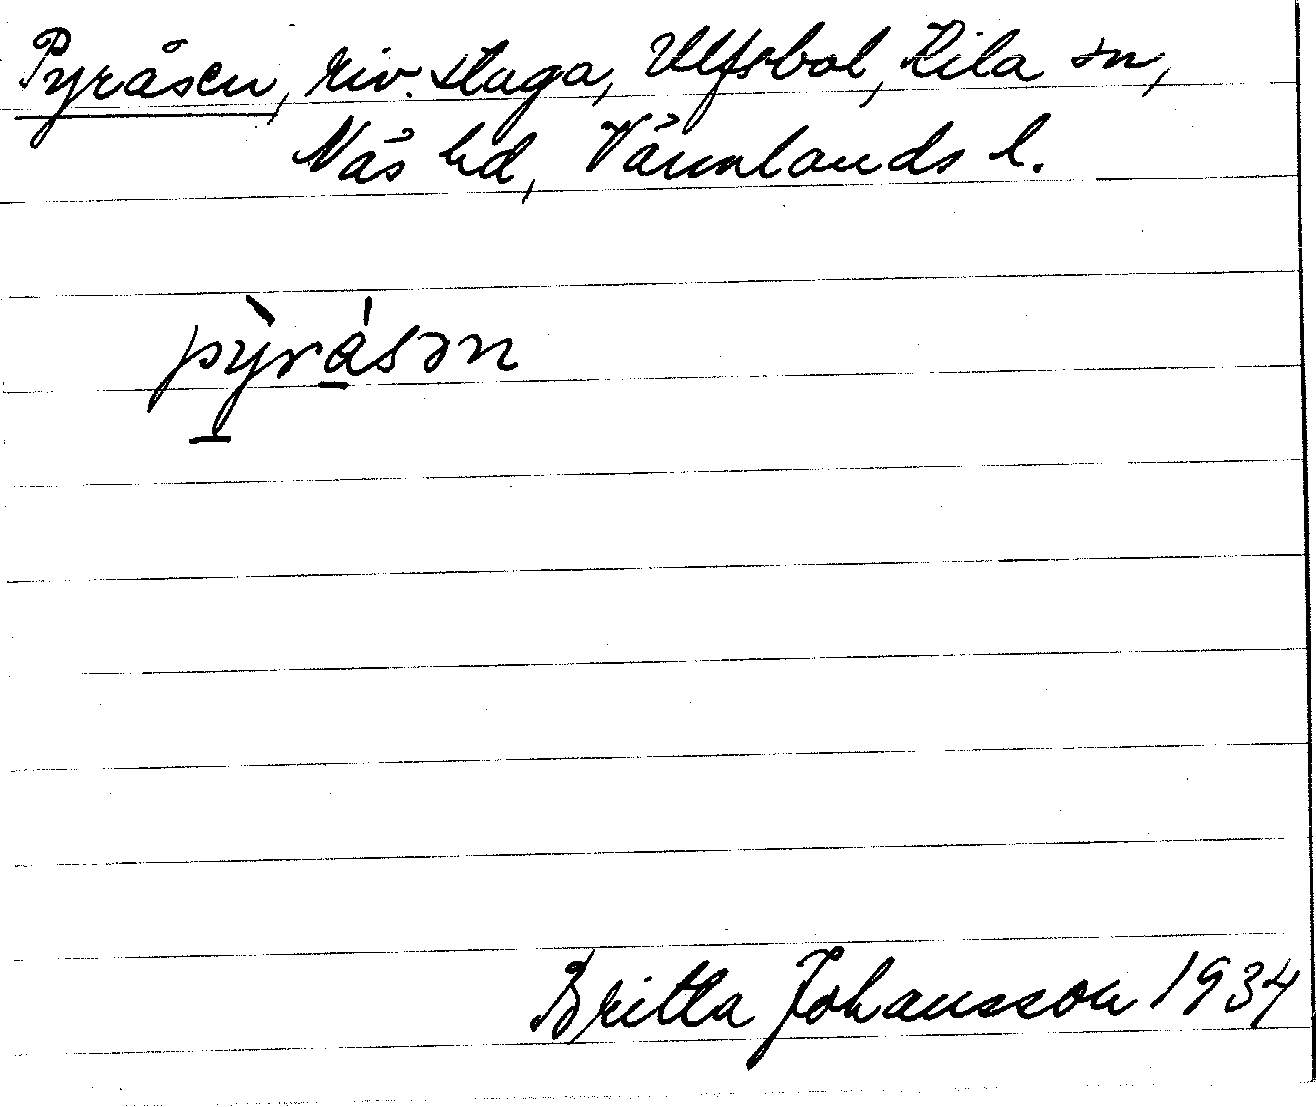 Pyråsen, riv. stuga, Ulfsbol, Kila sn,
Näs hd, Värmlands l.
pỳrásən
Britta Johansson 1934